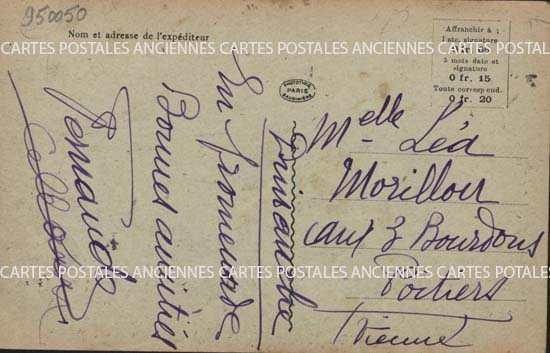 950050
Nom et adresse de l'expéditeur
Affranchir à :
1 ate. signature
5 mots date et
signature
0 fr. 15
Toute correspond.
0 fr. 20
CARTES POSTALES ANCIENNES CARTES POSTALES ANCIENNES CARTES POSTALES
PHOTOTYPIE
PARIS
En promenade
Bonnes amitiés
Fernand
Melle Léa
Morillon
aux 3 Bourdons
Poitiers
Vienne
CARTES POSTALES ANCIENNES CARTES POSTALES ANCIENNES CARTES POSTALES